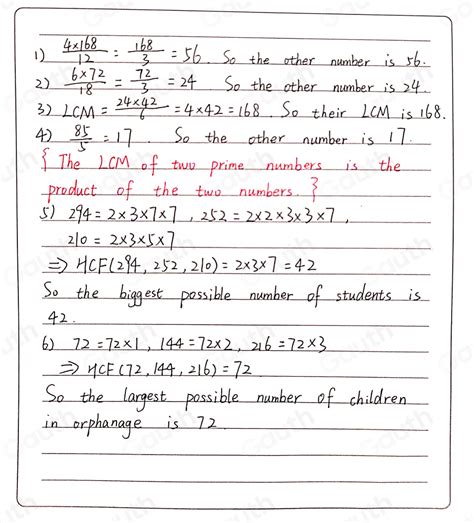 1) 4×168/12 = 168/3 = 56. So the other number is 56.
2) 6×72/18 = 72/3 = 24 So the other number is 24.
3) LCM = 24×42/6 = 4×42 = 168. So their LCM is 168.
4) 85/5 = 17. So the other number is 17.
{ The LCM of two prime numbers is the
product of the two numbers. }
5) 294 = 2×3×7×7, 252 = 2×2×3×3×7,
210 = 2×3×5×7
⇒ HCF(294, 252, 210) = 2×3×7 = 42
So the biggest possible number of students is
42.
6) 72 = 72×1, 144 = 72×2, 216 = 72×3
⇒ HCF(72, 144, 216) = 72
So the largest possible number of children
in orphanage is 72.